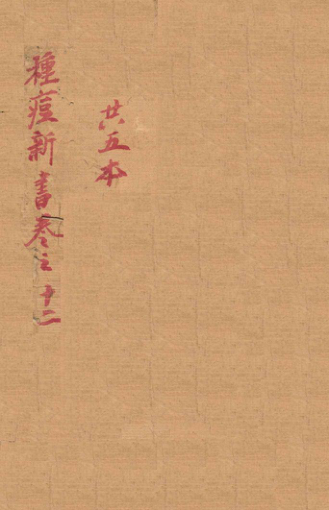 共五本
種痘新書卷之十二